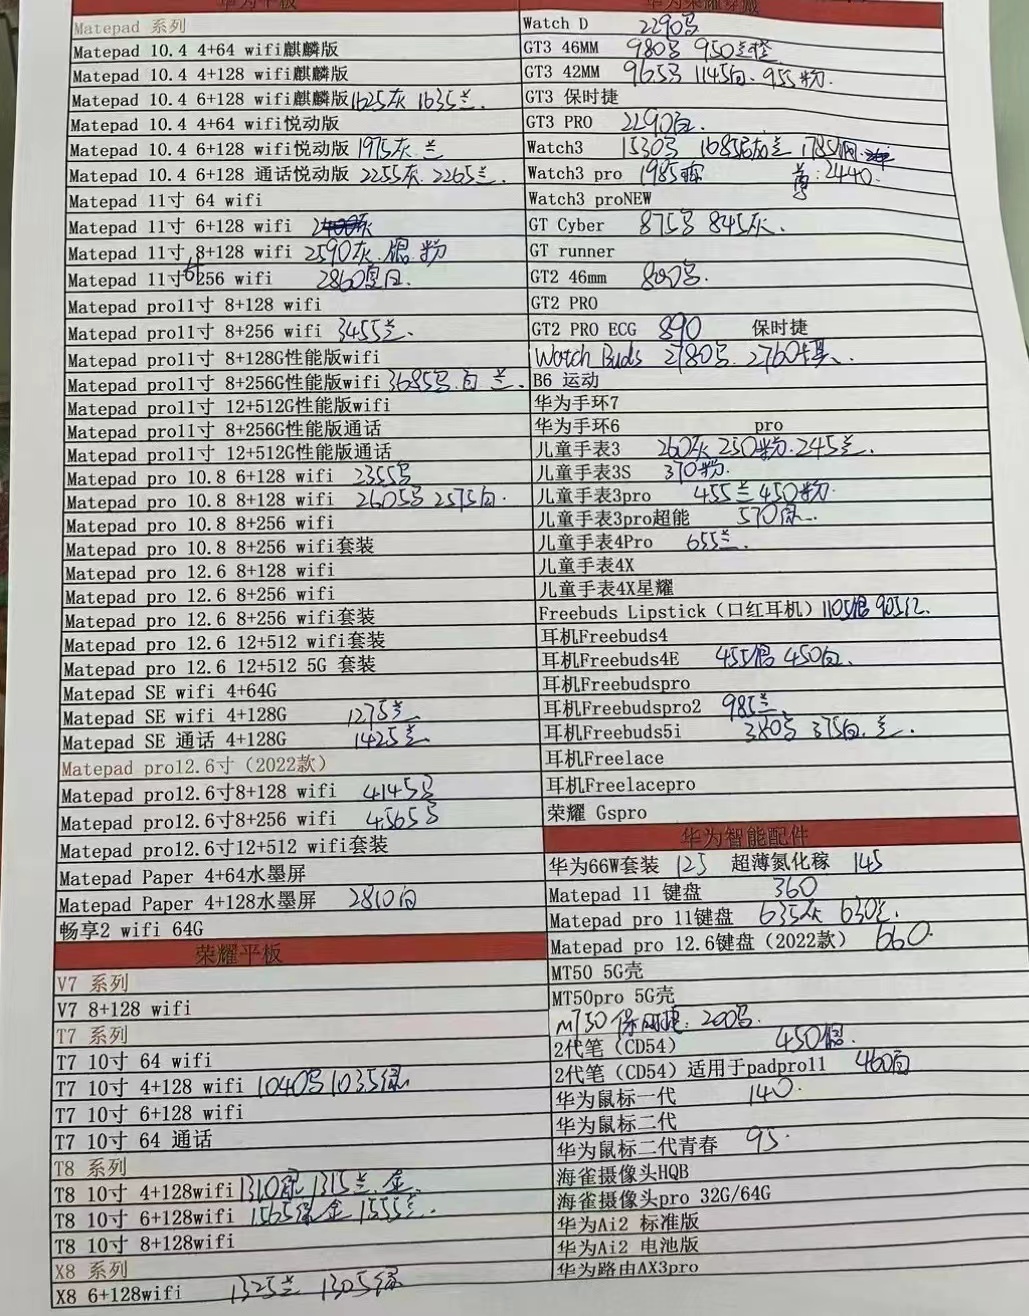 华为平板
Matepad 系列
Matepad 10.4 4+64 wifi麒麟版
Matepad 10.4 4+128 wifi麒麟版
Matepad 10.4 6+128 wifi麒麟版 1625灰 1635兰.
Matepad 10.4 4+64 wifi悦动版
Matepad 10.4 6+128 wifi悦动版 1975灰.兰
Matepad 10.4 6+128 通话悦动版 2255灰.2265兰.
Matepad 11寸 64 wifi
Matepad 11寸 6+128 wifi
Matepad 11寸 8+128 wifi 2590灰.银.粉
Matepad 11寸 256 wifi 2860
Matepad pro11寸 8+128 wifi
Matepad pro11寸 8+256 wifi 3455兰.
Matepad pro11寸 8+128G性能版wifi
Matepad pro11寸 8+256G性能版wifi 3685 白 兰.
Matepad pro11寸 12+512G性能版wifi
Matepad pro11寸 8+256G性能版通话
Matepad pro11寸 12+512G性能版通话
Matepad pro 10.8 6+128 wifi 2355
Matepad pro 10.8 8+128 wifi 2605 2575白.
Matepad pro 10.8 8+256 wifi
Matepad pro 10.8 8+256 wifi套装
Matepad pro 12.6 8+128 wifi
Matepad pro 12.6 8+256 wifi
Matepad pro 12.6 8+256 wifi套装
Matepad pro 12.6 12+512 wifi套装
Matepad pro 12.6 12+512 5G 套装
Matepad SE wifi 4+64G
Matepad SE wifi 4+128G 1275兰
Matepad SE 通话 4+128G 1425兰
Matepad pro12.6寸（2022款）
Matepad pro12.6寸8+128 wifi 4145
Matepad pro12.6寸8+256 wifi 4565
Matepad pro12.6寸12+512 wifi套装
Matepad Paper 4+64水墨屏
Matepad Paper 4+128水墨屏 2810白
畅享2 wifi 64G
荣耀平板
V7 系列
V7 8+128 wifi
T7 系列
T7 10寸 64 wifi
T7 10寸 4+128 wifi 1040 1035绿
T7 10寸 6+128 wifi
T7 10寸 64 通话
T8 系列
T8 10寸 4+128wifi 1310 1315兰.金.
T8 10寸 6+128wifi 1565绿金 1555兰.
T8 10寸 8+128wifi
X8 系列
X8 6+128wifi 1325兰 1305绿
华为荣耀穿戴
Watch D 2290
GT3 46MM 980 950
GT3 42MM 965 1145白.955粉.
GT3 保时捷
GT3 PRO 2290白.
Watch3 1530 1685
Watch3 pro 1985 尊:2440.
Watch3 proNEW
GT Cyber 875 845灰.
GT runner
GT2 46mm
GT2 PRO
GT2 PRO ECG 890 保时捷
Watch Buds 2780 2760
B6 运动
华为手环7
华为手环6 pro
儿童手表3 260灰 250粉.245兰.
儿童手表3S 370粉.
儿童手表3pro 455兰 450粉.
儿童手表3pro超能 570
儿童手表4Pro 655兰.
儿童手表4X
儿童手表4X星耀
Freebuds Lipstick（口红耳机）1105 905红.
耳机Freebuds4
耳机Freebuds4E 455银 450白.
耳机Freebudspro
耳机Freebudspro2 985兰
耳机Freebuds5i 380 375白.兰.
耳机Freelace
耳机Freelacepro
荣耀 Gspro
华为智能配件
华为66W套装 125 超薄氮化稼 145
Matepad 11 键盘 360
Matepad pro 11键盘 635灰 630兰.
Matepad pro 12.6键盘（2022款） 660.
MT50 5G壳
MT50pro 5G壳
MT50 保时捷: 200
2代笔（CD54） 450银.
2代笔（CD54）适用于padpro11 460白
华为鼠标一代 140.
华为鼠标二代
华为鼠标二代青春 95.
海雀摄像头HQB
海雀摄像头pro 32G/64G
华为Ai2 标准版
华为Ai2 电池版
华为路由AX3pro